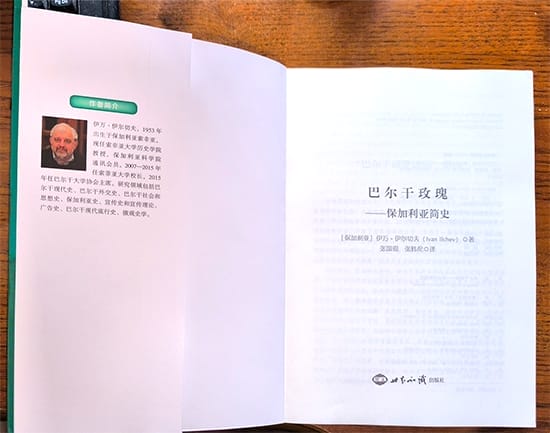 作者简介
伊万·伊尔切夫，1953年
出生于保加利亚索非亚，
现任索非亚大学历史学院
教授，保加利亚科学院
通讯会员。2007—2015年
任索非亚大学校长，2015
年任巴尔干大学协会主席。研究领域包括巴
尔干现代史、巴尔干外交史、巴尔干社会和
思想史、保加利亚史、宣传史和宣传理论、
广告史、巴尔干现代流行史、微观史学。
巴尔干玫瑰
——保加利亚简史
［保加利亚］伊万·伊尔切夫（Ivan Ilchev）◎著
张图强 张胜虎◎译
世界知识出版社